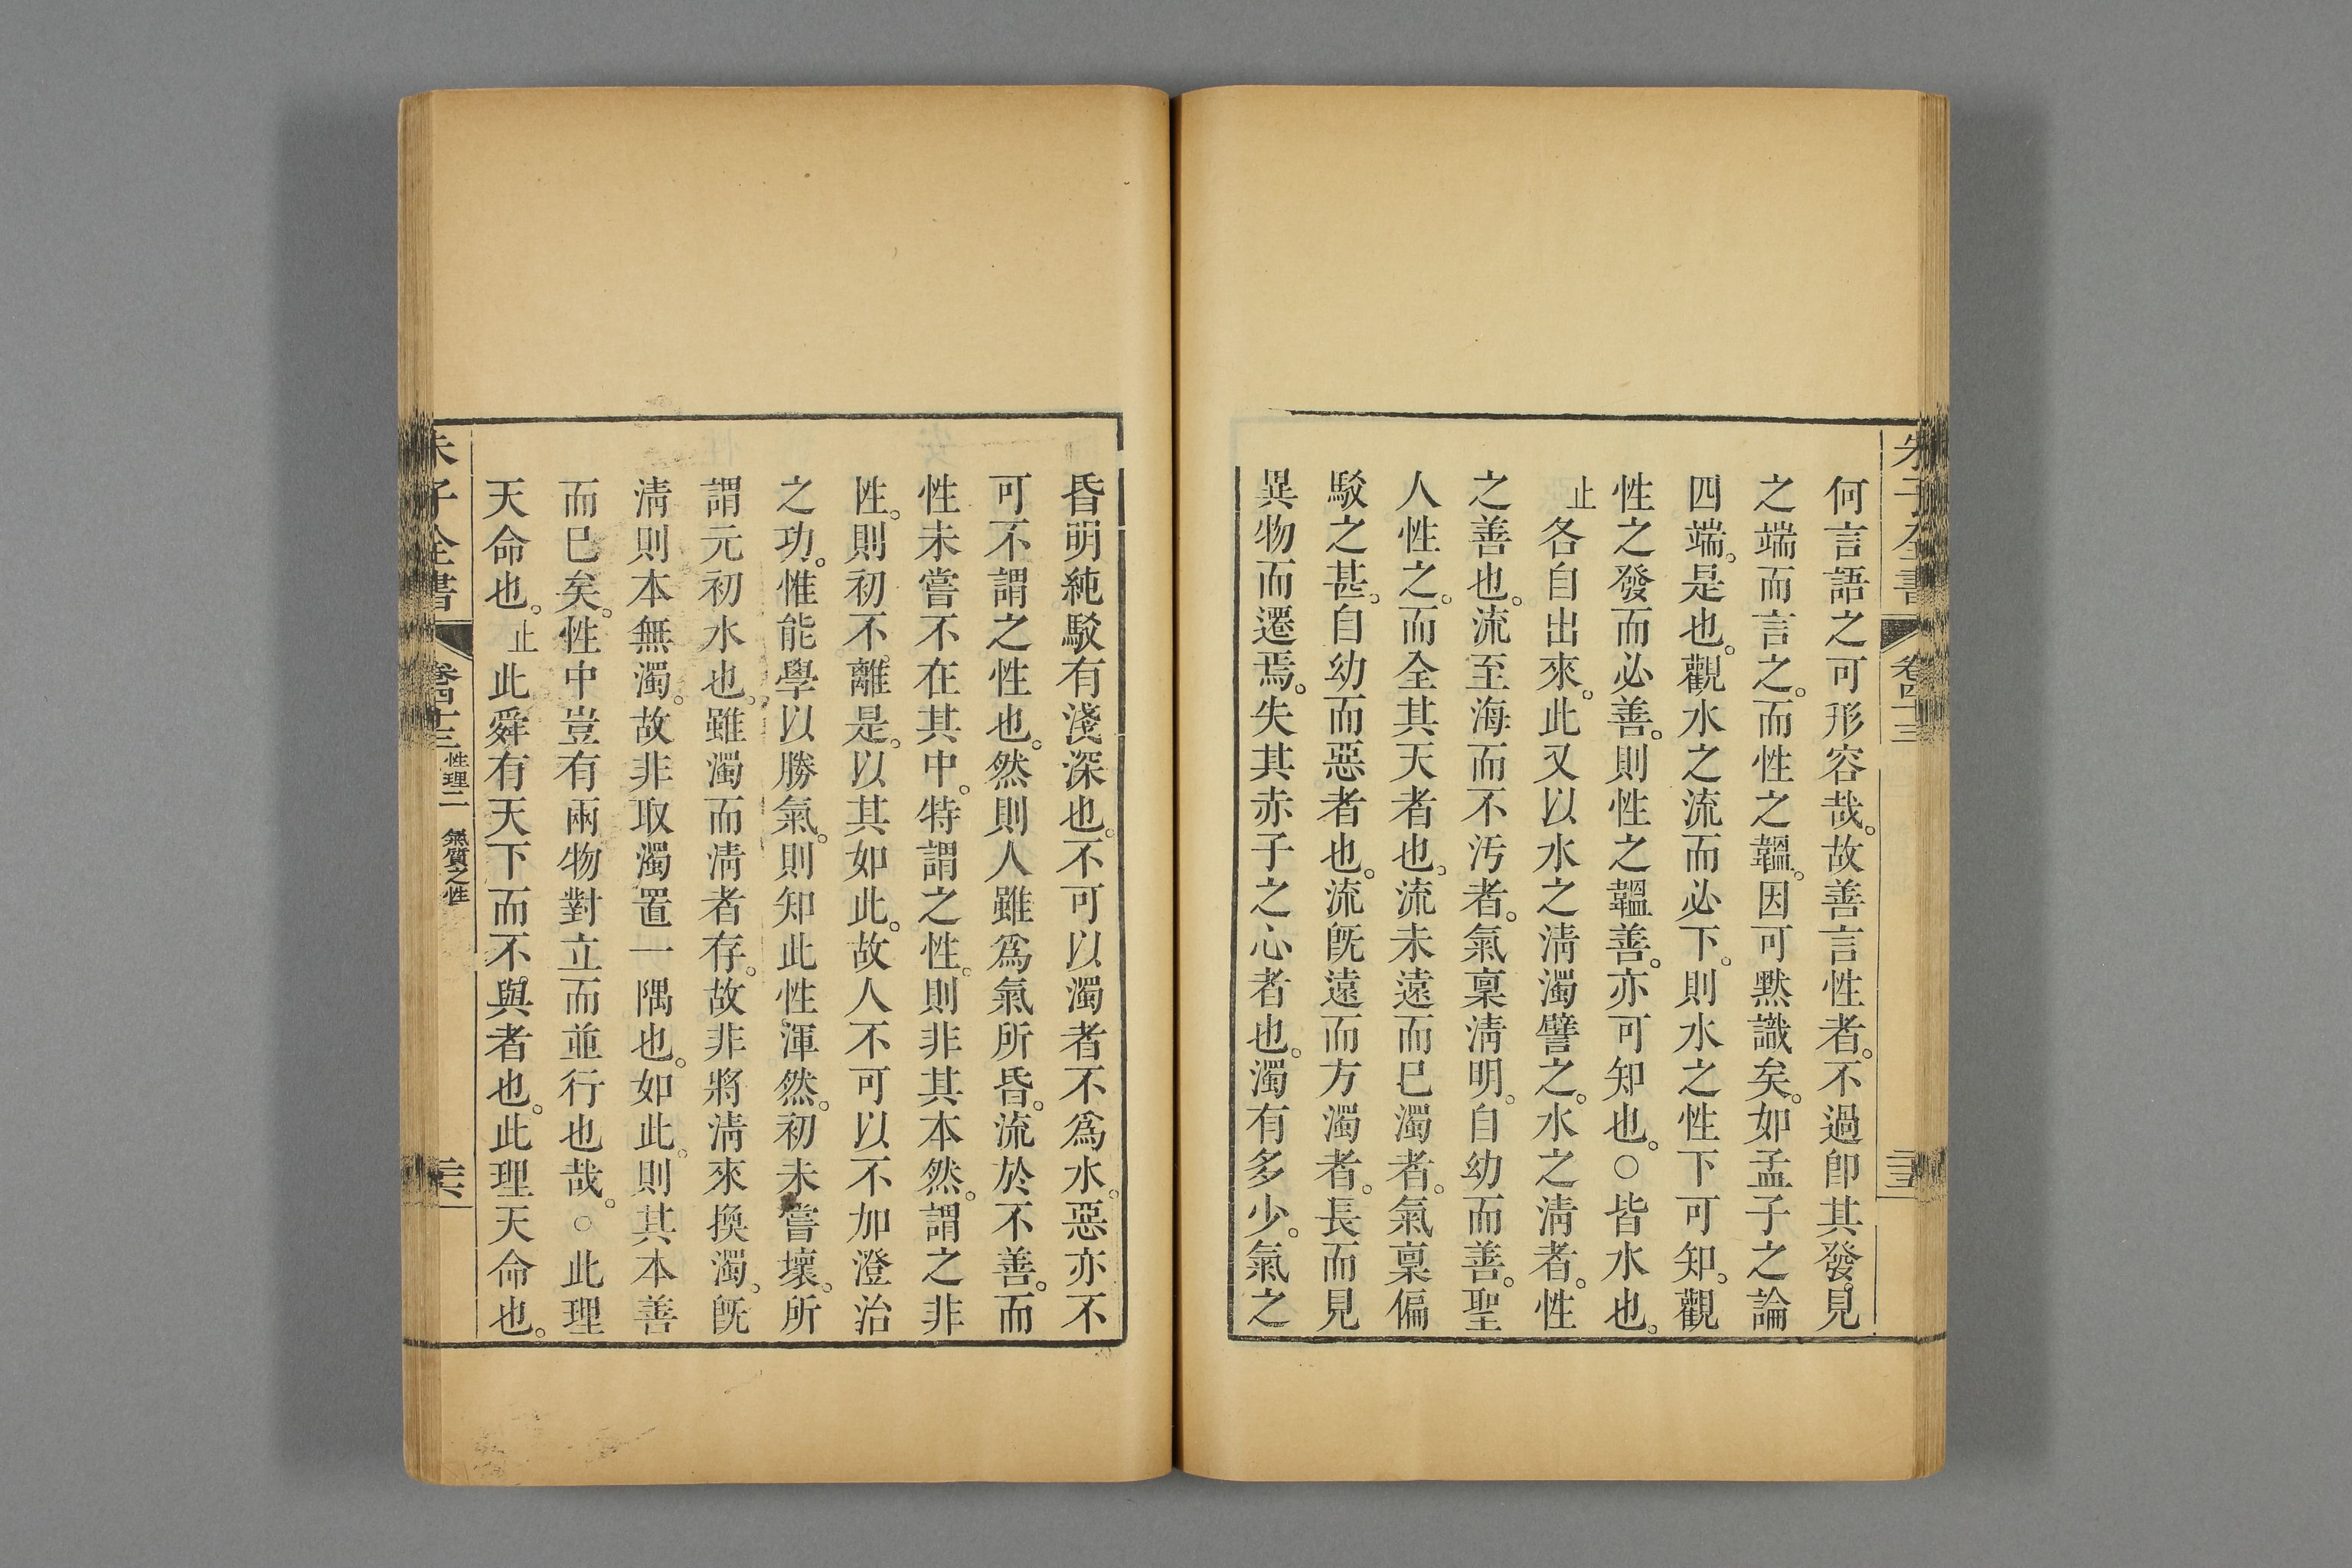 朱子全書 卷四十三
何言語之可形容哉。故善言性者。不過卽其發見
之端而言之。而性之韞。因可黙識矣。如孟子之論
四端。是也。觀水之流而必下。則水之性下可知。觀
性之發而必善。則性之韞善。亦可知也。○皆水也。
止各自出來。此又以水之淸濁譬之。水之淸者。性
之善也。流至海而不汚者。氣稟淸明。自幼而善。聖
人性之。而全其天者也。流未遠而已濁者。氣稟偏
駁之甚。自幼而惡者也。流旣遠而方濁者。長而見
異物而遷焉。失其赤子之心者也。濁有多少。氣之
昏明純駁有淺深也。不可以濁者不爲水。惡亦不
可不謂之性也。然則人雖爲氣所昏。流於不善。而
性未嘗不在其中。特謂之性。則非其本然。謂之非
性。則初不離是。以其如此。故人不可以不加澄治
之功。惟能學以勝氣。則知此性渾然。初未嘗壞。所
謂元初水也。雖濁而淸者存。故非將淸來換濁。旣
淸則本無濁。故非取濁置一隅也。如此。則其本善
而已矣。性中豈有兩物對立而並行也哉。○此理
天命也。止此舜有天下而不與者也。此理天命也。
朱子全書 卷四十三 性理二 氣質之性